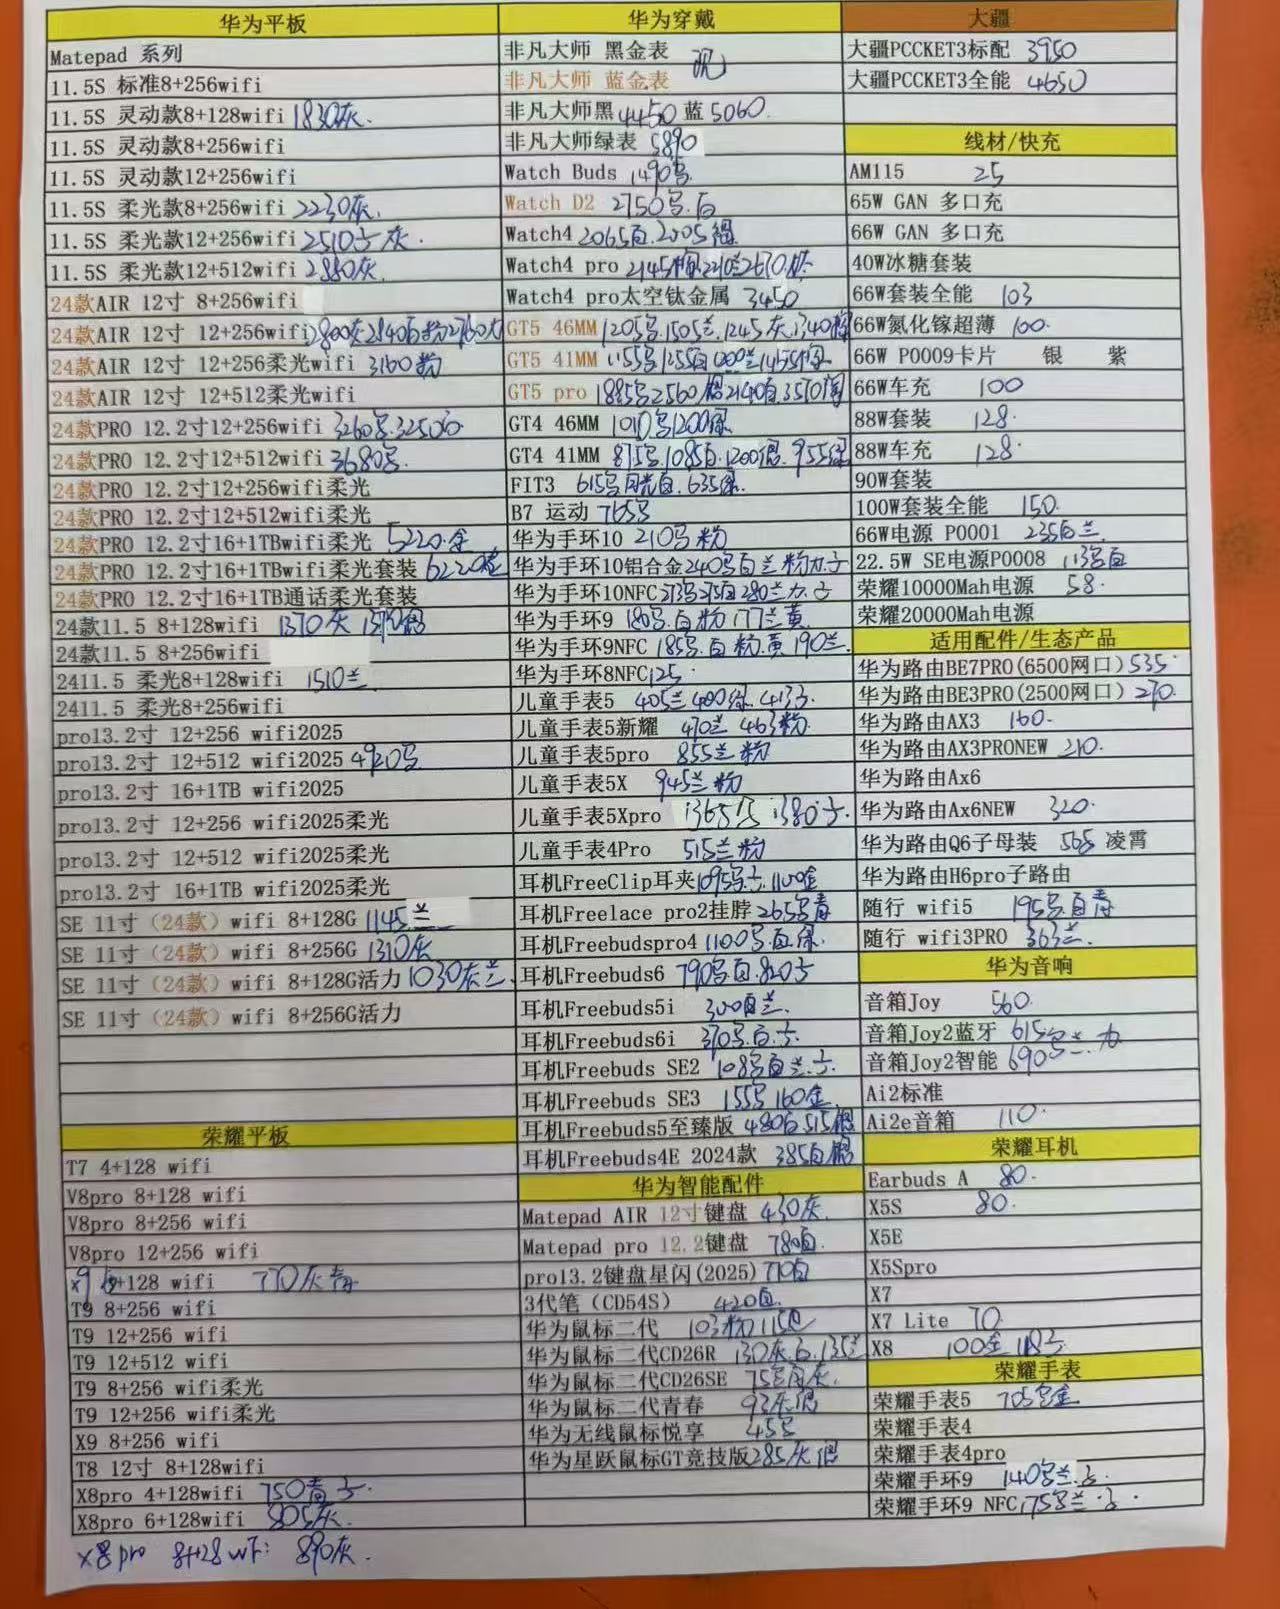 华为平板
Matepad 系列
11.5S 标准8+256wifi
11.5S 灵动款8+128wifi 1830灰.
11.5S 灵动款8+256wifi
11.5S 灵动款12+256wifi
11.5S 柔光款8+256wifi 2230灰.
11.5S 柔光款12+256wifi 2510 灰.
11.5S 柔光款12+512wifi 2880灰.
24款AIR 12寸 8+256wifi
24款AIR 12寸 12+256wifi 2800灰2840白粉2760
24款AIR 12寸 12+256柔光wifi 3160粉
24款AIR 12寸 12+512柔光wifi
24款PRO 12.2寸12+256wifi 3260 3250
24款PRO 12.2寸12+512wifi 3680
24款PRO 12.2寸12+256wifi柔光
24款PRO 12.2寸12+512wifi柔光
24款PRO 12.2寸16+1TBwifi柔光 5220.金
24款PRO 12.2寸16+1TBwifi柔光套装 6220
24款PRO 12.2寸16+1TB通话柔光套装
24款11.5 8+128wifi 1370灰
24款11.5 8+256wifi
2411.5 柔光8+128wifi 1510兰
2411.5 柔光8+256wifi
pro13.2寸 12+256 wifi2025
pro13.2寸 12+512 wifi2025 4920
pro13.2寸 16+1TB wifi2025
pro13.2寸 12+256 wifi2025柔光
pro13.2寸 12+512 wifi2025柔光
pro13.2寸 16+1TB wifi2025柔光
SE 11寸（24款）wifi 8+128G 1145兰
SE 11寸（24款）wifi 8+256G 1310灰
SE 11寸（24款）wifi 8+128G活力 1030灰兰.
SE 11寸（24款）wifi 8+256G活力
荣耀平板
T7 4+128 wifi
V8pro 8+128 wifi
V8pro 8+256 wifi
V8pro 12+256 wifi
+128 wifi 770灰青
T9 8+256 wifi
T9 12+256 wifi
T9 12+512 wifi
T9 8+256 wifi柔光
T9 12+256 wifi柔光
X9 8+256 wifi
T8 12寸 8+128wifi
X8pro 4+128wifi 750青
X8pro 6+128wifi 805灰.
X8pro 8+128 wifi 890灰.
华为穿戴
非凡大师 黑金表
非凡大师 蓝金表
非凡大师黑4450 蓝5060.
非凡大师绿表 5890
Watch Buds 1490
Watch D2 2750 白
Watch4 2065白.2005
Watch4 pro 2145 兰2670
Watch4 pro太空钛金属 3450
GT5 46MM 1205 1505兰.1245灰1340
GT5 41MM 1155 1255白
GT5 pro 1885 2560 2140白3570
GT4 46MM 1010 1200绿
GT4 41MM 875 1085白.1200 955绿
FIT3 615 月光白.635绿.
B7 运动 765
华为手环10 210 粉
华为手环10铝合金240 白兰粉
华为手环10NFC 280兰
华为手环9 180 白粉177兰黄
华为手环9NFC 185 白粉.黄190兰.
华为手环8NFC 125.
儿童手表5 405兰400绿.413
儿童手表5新耀 470兰 463粉
儿童手表5pro 855兰粉
儿童手表5X 945兰粉
儿童手表5Xpro 1365 1380
儿童手表4Pro 515兰粉
耳机FreeClip耳夹1095 1100金
耳机Freelace pro2挂脖265 青
耳机Freebudspro4 1100 白绿.
耳机Freebuds6 790 白.820
耳机Freebuds5i 300白兰.
耳机Freebuds6i 370 白.
耳机Freebuds SE2 108 白兰.
耳机Freebuds SE3 155 160金
耳机Freebuds5至臻版 480白515
耳机Freebuds4E 2024款 385白
华为智能配件
Matepad AIR 12寸键盘 430灰.
Matepad pro 12.2键盘 780白.
pro13.2键盘星闪(2025)710白
3代笔（CD54S） 420白.
华为鼠标二代 103粉115
华为鼠标二代CD26R 130灰白.135兰
华为鼠标二代CD26SE 75 灰.
华为鼠标二代青春 93灰
华为无线鼠标悦享 45
华为星跃鼠标GT竞技版285灰
大疆
大疆PCCKET3标配 3950
大疆PCCKET3全能 4650
线材/快充
AM115 25
65W GAN 多口充
66W GAN 多口充
40W冰糖套装
66W套装全能 103
66W氮化镓超薄 100.
66W P0009卡片 银 紫
66W车充 100
88W套装 128.
88W车充 128.
90W套装
100W套装全能 150.
66W电源 P0001 235白兰.
22.5W SE电源P0008 113 白
荣耀10000Mah电源 58.
荣耀20000Mah电源
适用配件/生态产品
华为路由BE7PRO(6500网口) 535.
华为路由BE3PRO(2500网口) 270.
华为路由AX3 160.
华为路由AX3PRONEW 210.
华为路由Ax6
华为路由Ax6NEW 320.
华为路由Q6子母装 565 凌霄
华为路由H6pro子路由
随行 wifi5 195 白青
随行 wifi3PRO 363兰.
华为音响
音箱Joy 560.
音箱Joy2蓝牙 615
音箱Joy2智能 690
Ai2标准
Ai2e音箱 110.
荣耀耳机
Earbuds A 80.
X5S 80.
X5E
X5Spro
X7
X7 Lite 70
X8 100金 118
荣耀手表
荣耀手表5 705 金
荣耀手表4
荣耀手表4pro
荣耀手环9 140 兰.
荣耀手环9 NFC 175 兰.